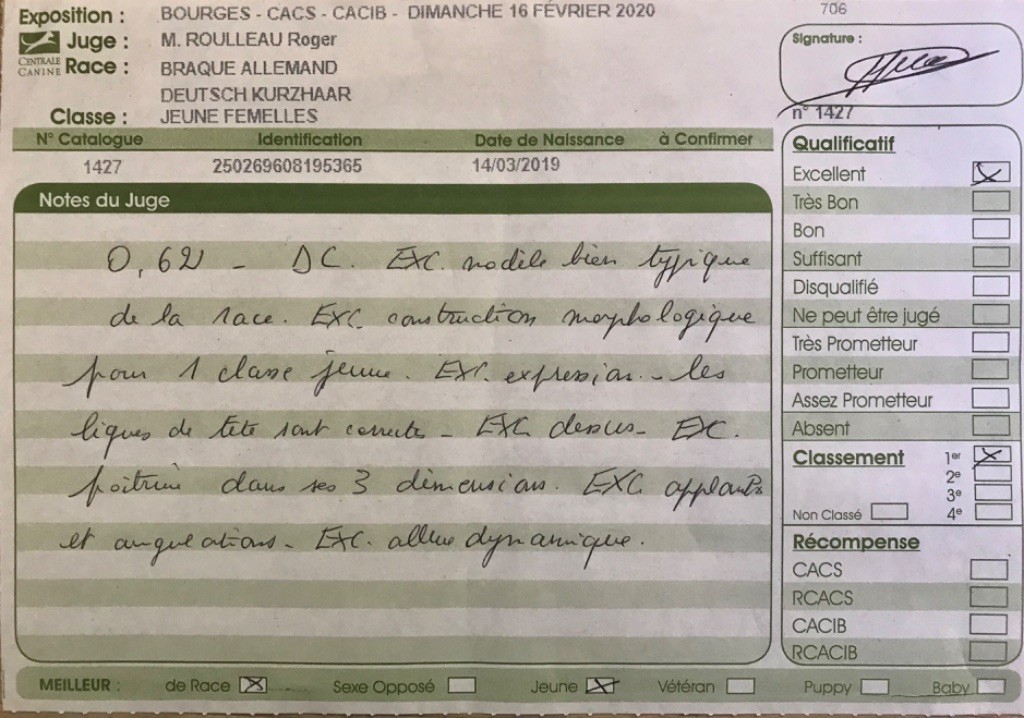 Exposition : BOURGES - CACS - CACIB - DIMANCHE 16 FÉVRIER 2020
706
Juge : M. ROULLEAU Roger
CENTRALE CANINE
Race : BRAQUE ALLEMAND
DEUTSCH KURZHAAR
Classe : JEUNE FEMELLES
Signature :
n° 1427
N° Catalogue Identification Date de Naissance à Confirmer
1427 250269608195365 14/03/2019
Notes du Juge
0,62 - DC. EXC. modèle bien typique
de la race. EXC. construction morphologique
pour 1 classe jeune. EXC. expression - les
lignes de tête sont correctes - EXC dessus - EXC.
poitrine dans ses 3 dimensions. EXC applombs
et angulations - EXC. allure dynamique.
Qualificatif
Excellent
Très Bon
Bon
Suffisant
Disqualifié
Ne peut être jugé
Très Prometteur
Prometteur
Assez Prometteur
Absent
Classement 1er
2e
3e
Non Classé 4e
Récompense
CACS
RCACS
CACIB
RCACIB
MEILLEUR : de Race Sexe Opposé Jeune Vétéran Puppy Baby